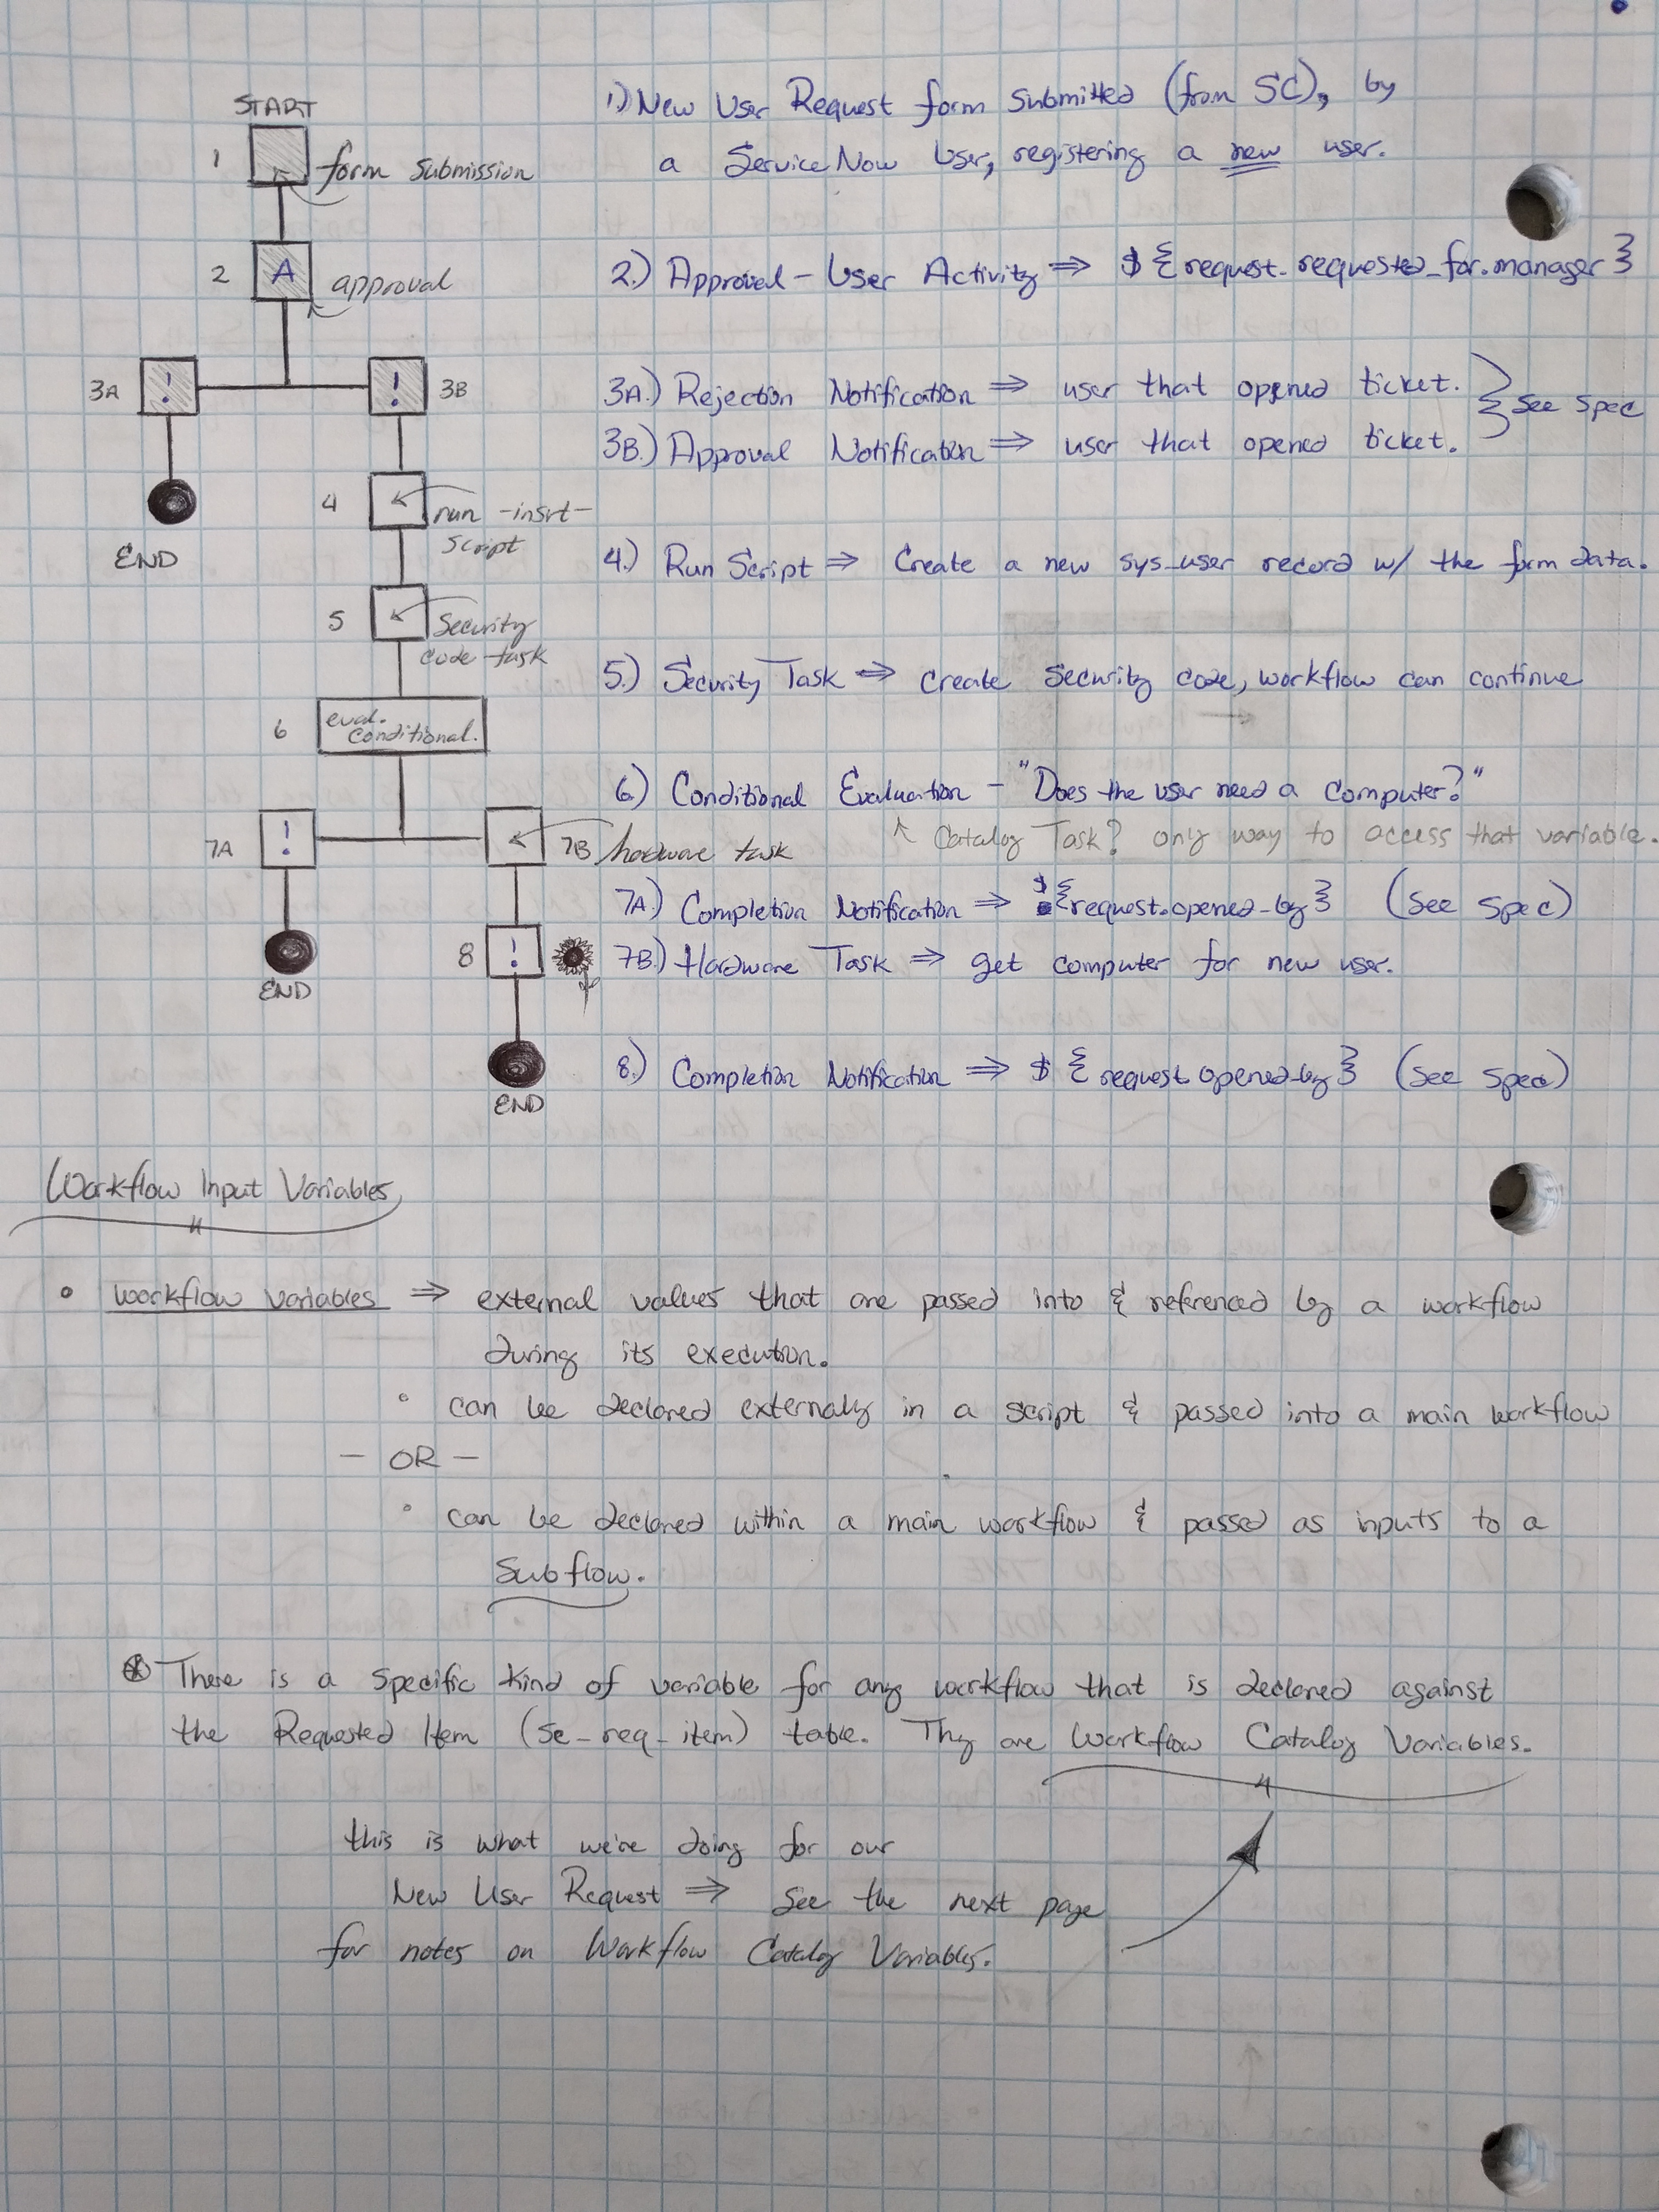 START
1
form submission
2
A
approval
3A
!
!
3B
END
4
run-insrt-
script
5
Security
code task
6
eval.
conditional.
7A
!
7B hardware task
END
8
!
END
1) New User Request form submitted (from SC), by
a ServiceNow User, registering a new user.
2.) Approval - User Activity ⇒ ${request.requested_for.manager}
3A.) Rejection Notification ⇒ user that opened ticket.
3B.) Approval Notification ⇒ user that opened ticket.
} See spec
4.) Run Script ⇒ Create a new sys_user record w/ the form data.
5.) Security Task ⇒ create security code, workflow can continue
6.) Conditional Evaluation - "Does the user need a computer?"
↖ Catalog Task? only way to access that variable.
7A.) Completion Notification ⇒ ${request.opened_by} (See Spec)
7B.) Hardware Task ⇒ get computer for new user.
8.) Completion Notification ⇒ ${request.opened_by} (See Spec)
Workflow Input Variables
• workflow variables ⇒ external values that are passed into & referenced by a workflow
during its execution.
• can be declared externally in a script & passed into a main workflow
- OR -
• can be declared within a main workflow & passed as inputs to a
Subflow.
⊛ There is a specific kind of variable for any workflow that is declared against
the Requested Item (sc_req_item) table. They are Workflow Catalog Variables.
this is what we're doing for our
New User Request ⇒ See the next page
for notes on Workflow Catalog Variables.